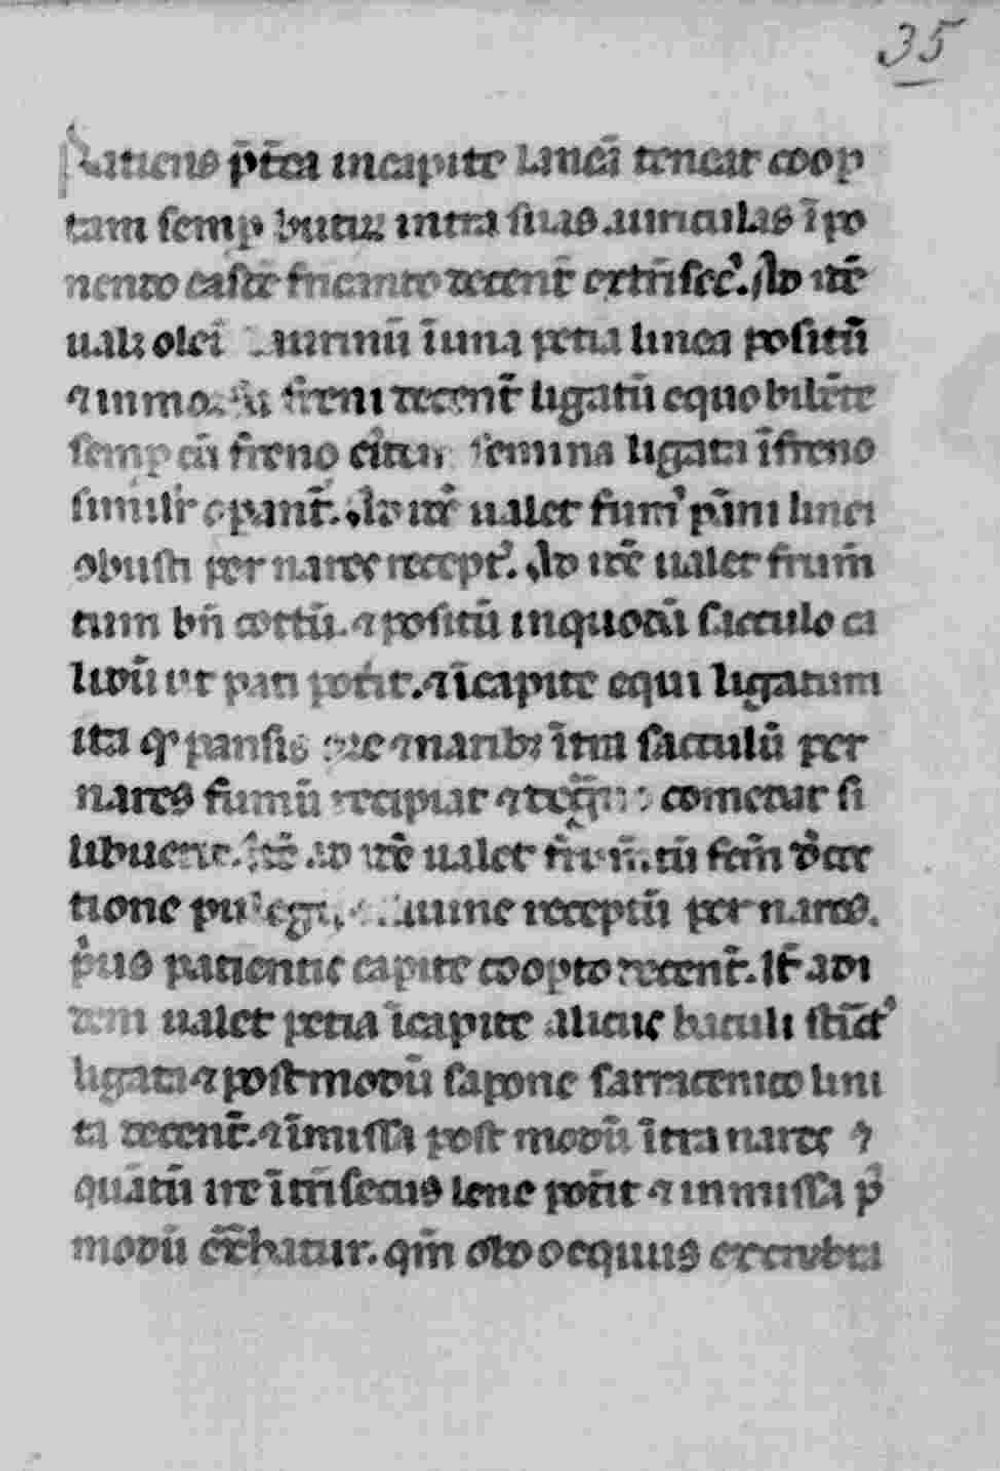 35
Patiens p̄t̄ea incapite laneā teneat coop
tam semp butiꝝ intra suas auriculas īpo
nendo easdē fricando decent̄ extrīsecꝰ. Ad idē
ualꝫ oleū Laurinū īuna petia linea positū
⁊ inmorsu freni decent̄ ligatū equo bibēte
semp cū freno ligata īfreno
similit̓ opant̄. Ad idē ualet fumꝰ pāni linei
obusti per nares receptꝰ. Ad idē ualet frum̄
tum bn̄ coctū. ⁊ positū inquodā sacculo ca
lidū ut pati potit. ⁊ īcapite equi ligatum
ita ꝙ pansis ore ⁊ naribꝫ ītra sacculū per
nares fumū recipiat ⁊ de comedat si
libuerit. ad idē ualet
tione receptū per nares.
pꝰus patientis capite coopto decent̄. It̄ adi
dem ualet petia īcapite alicuiꝰ baculi st̄ictꝰ
ligata ⁊ postmodū sapone sarracenico lini
ta decent̄. ⁊ īmissa post modū ītra nares ⁊
quātū ire īt̄īsecus lene potit ⁊ inmissa p̄
modū ext̄hatur. qm̄ equus